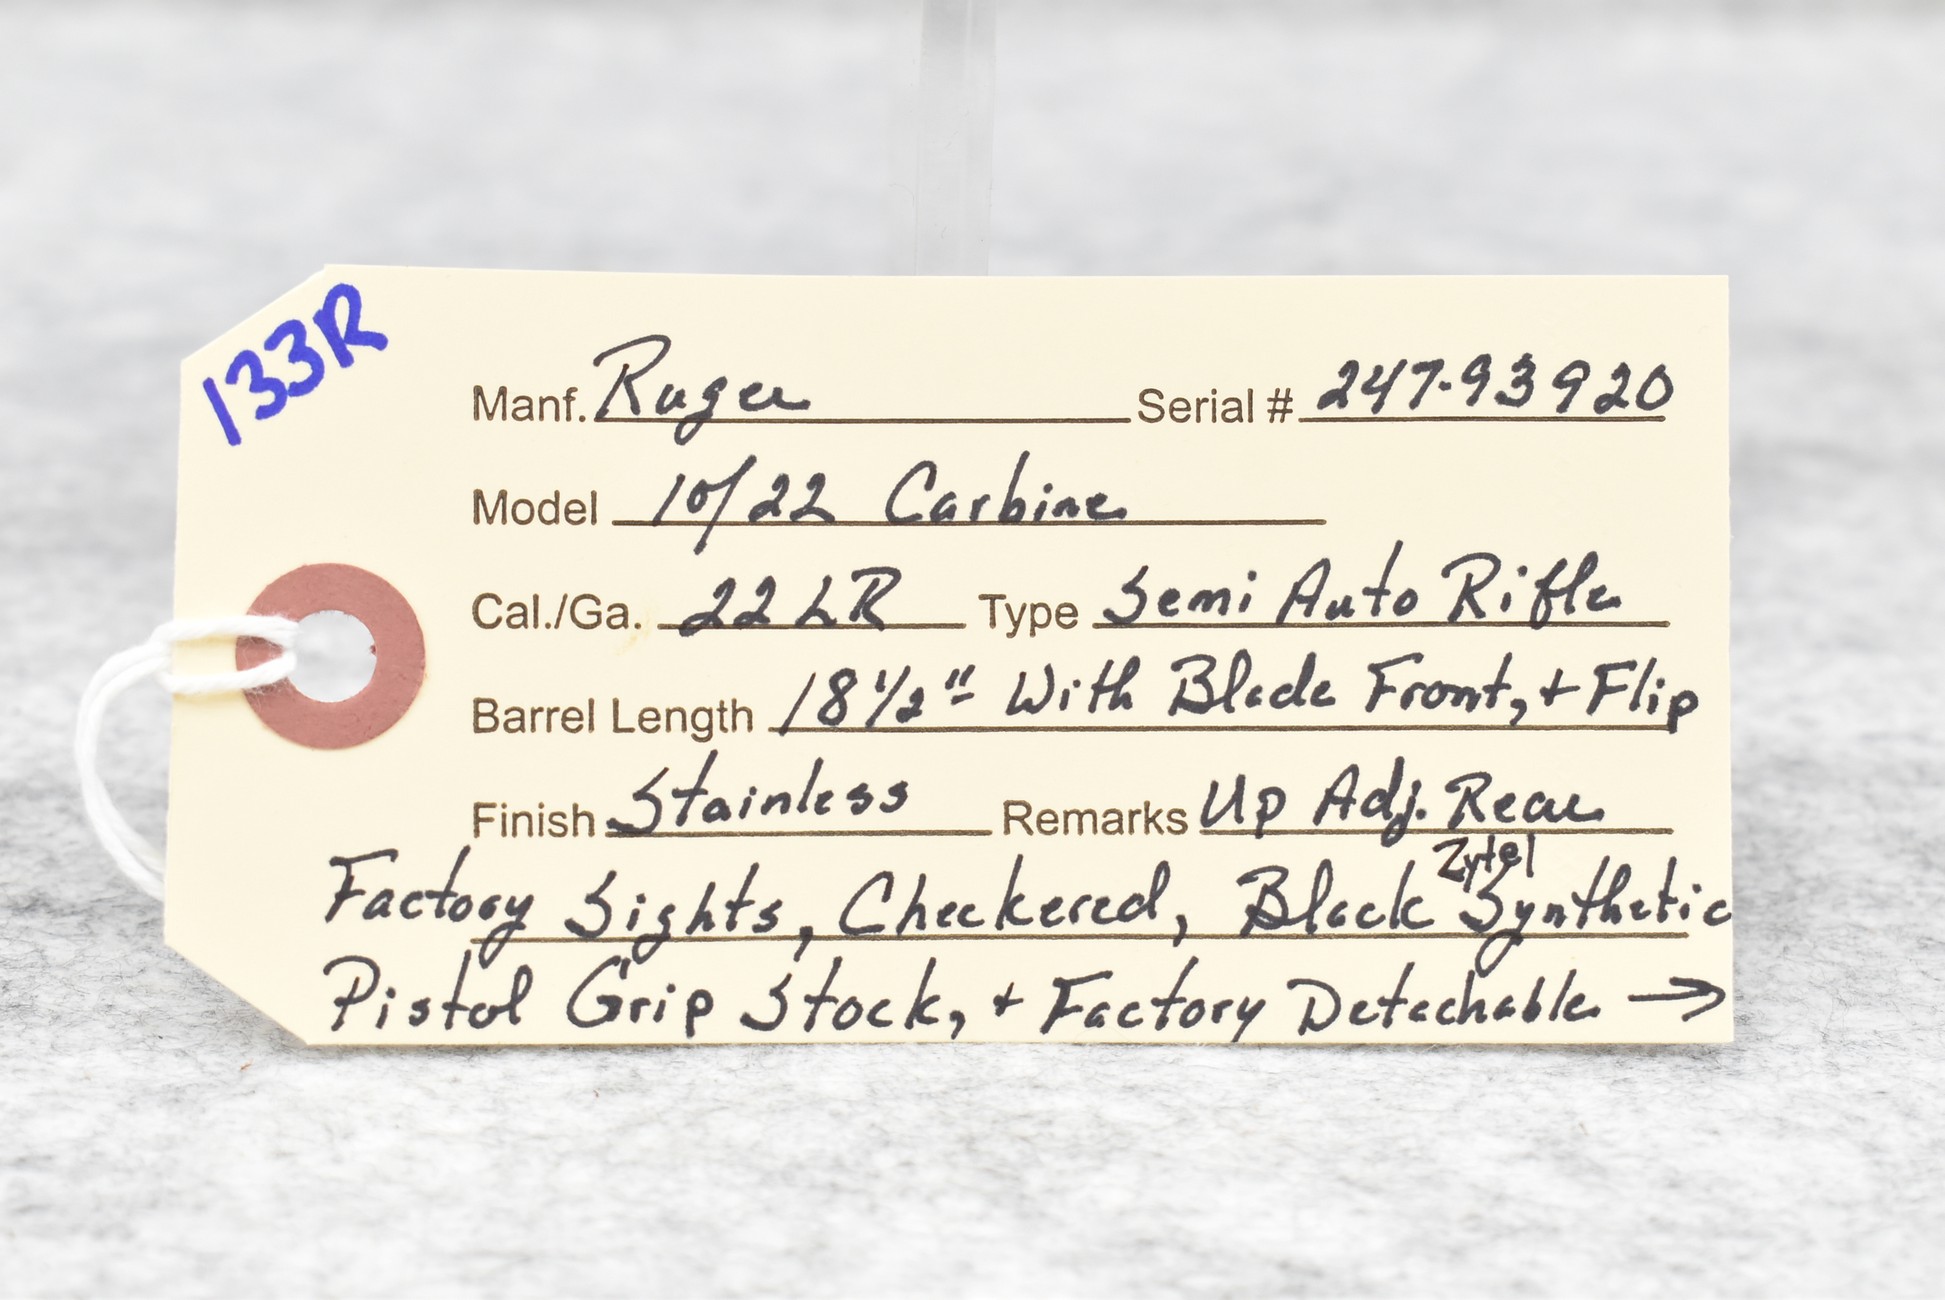 133R
Manf. Ruger Serial # 247-93920
Model 10/22 Carbine
Cal./Ga. 22 LR Type Semi Auto Rifle
Barrel Length 18 1/2" With Blade Front, + Flip
Finish Stainless Remarks Up Adj. Rear
Zytel
Factory Sights, Checkered, Black Synthetic
Pistol Grip Stock, + Factory Detachable →